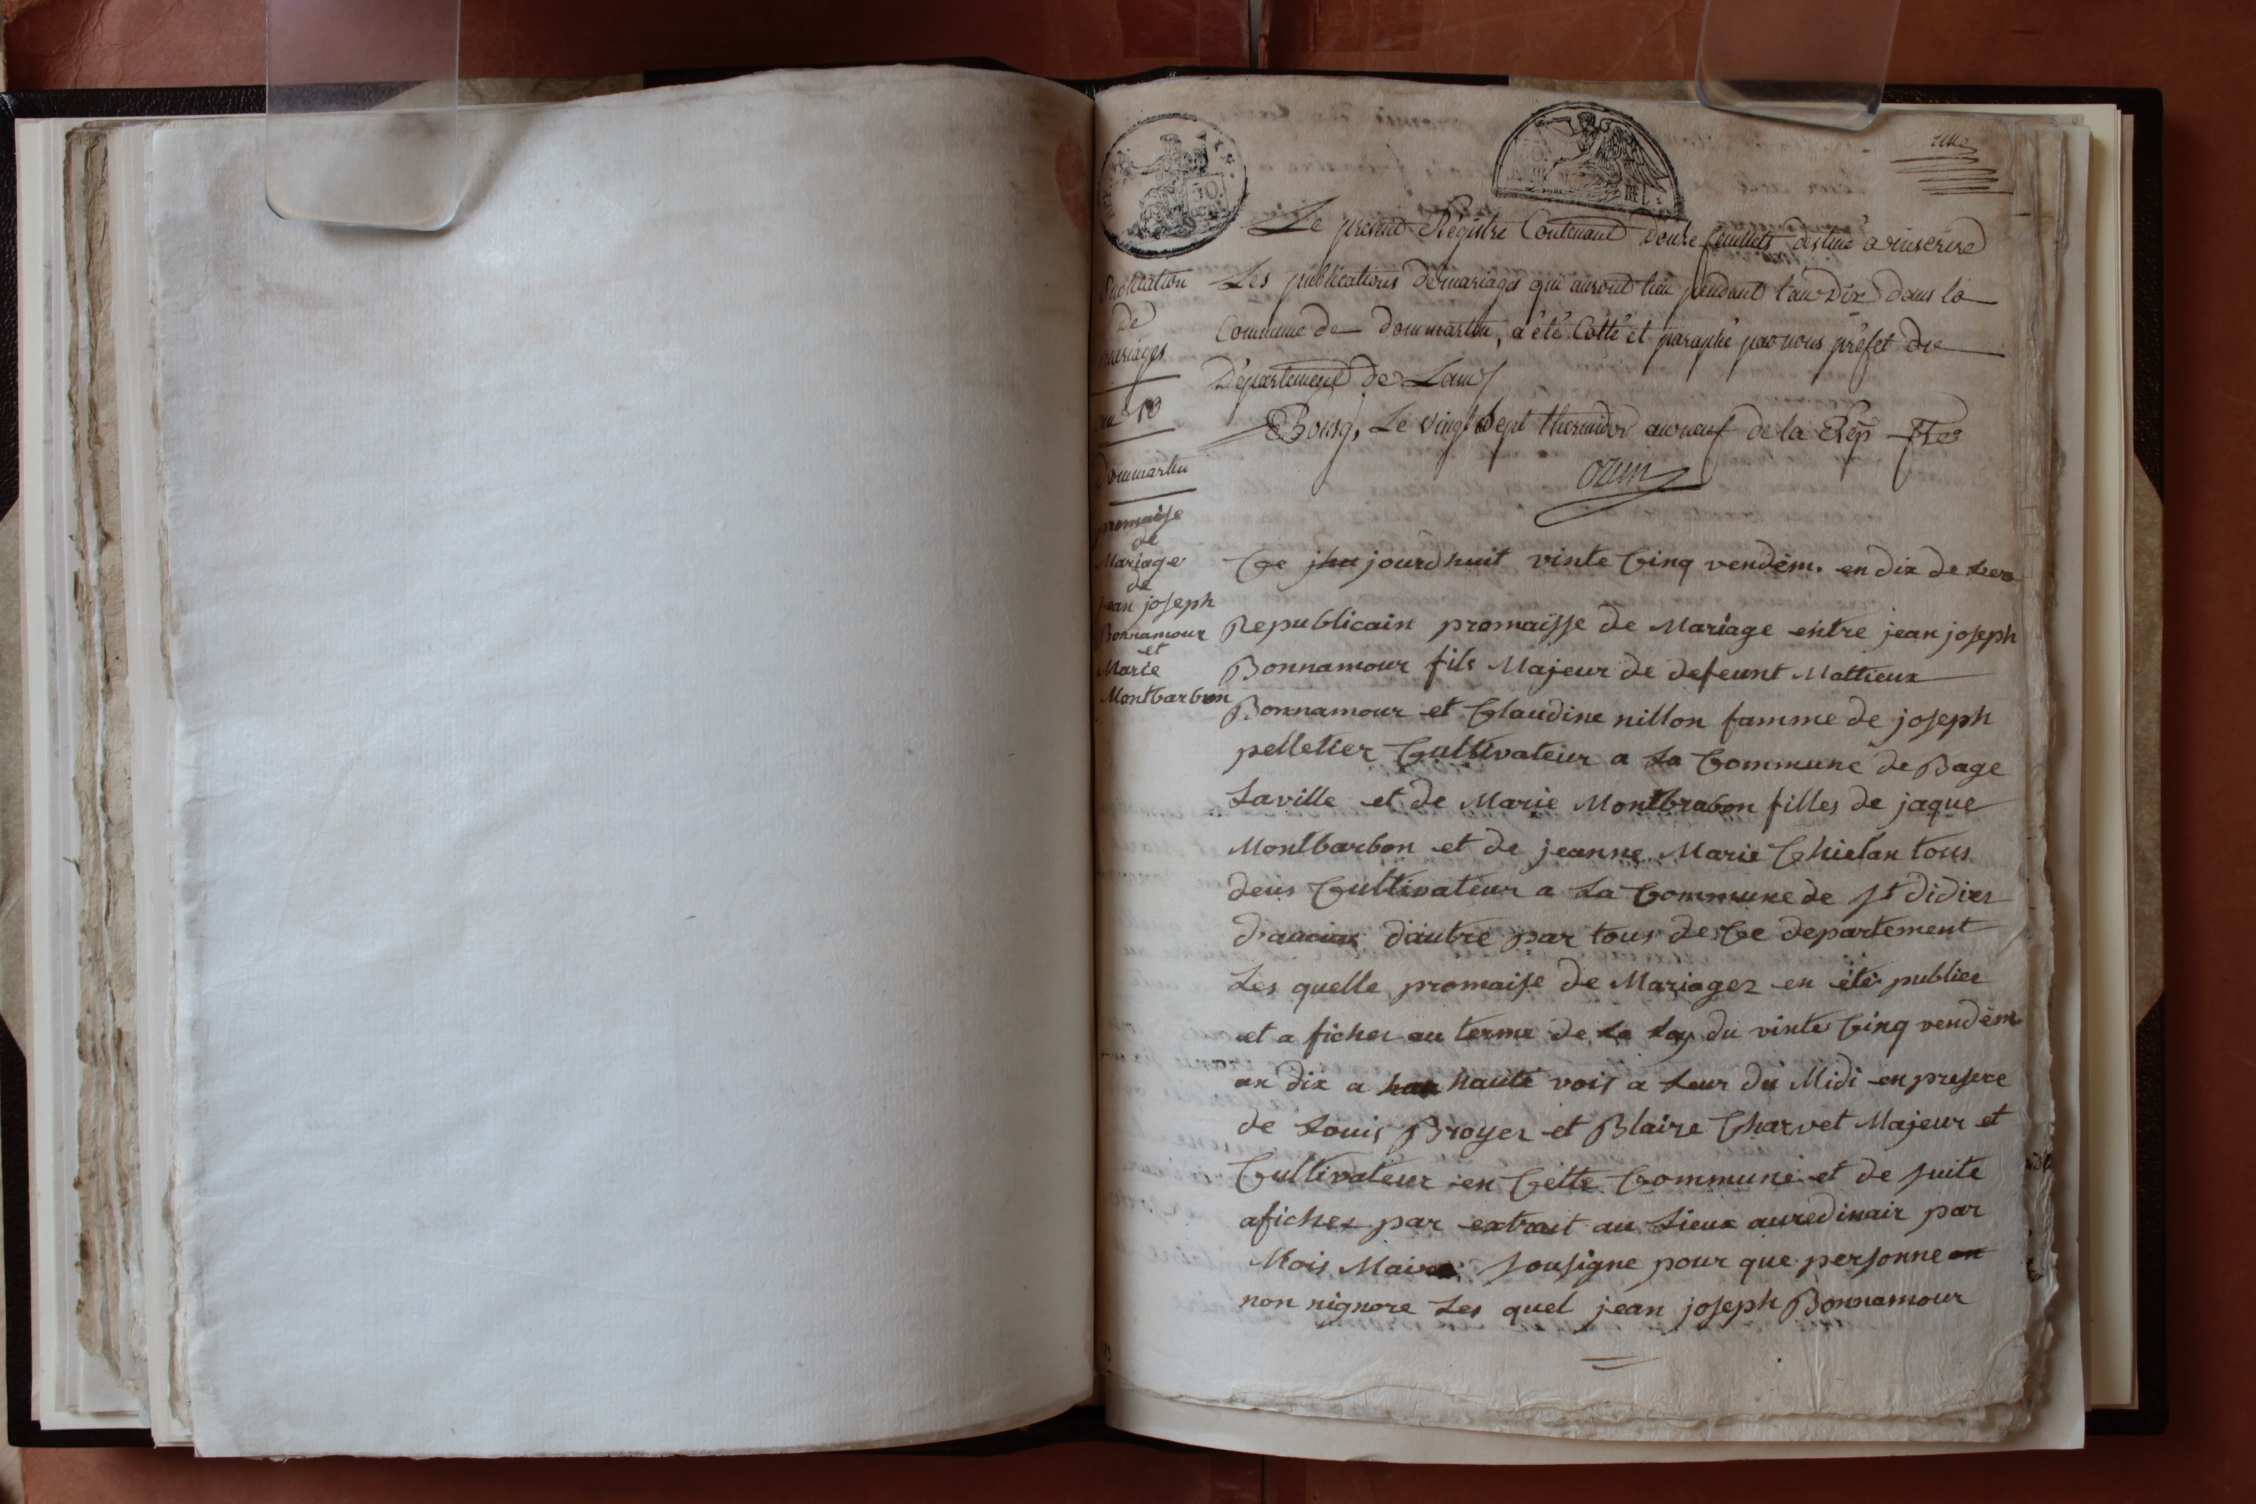 une
Le présent Régistre Contenant douze feuillets destiné a inscrire
Les publications de mariages qui auront lieu pendant l'an Dix dans la
Commune de Dommartin, a été Côtté et paraphé par nous préfet du
Département de Lain
Bourg, Le vingt Sept thermidor an neuf de la Rép fse
ozun
publication
de
mariages
an 10
Dommartin
promaisse
de
Mariage
de
jean joseph
Bonnamour
et
Marie
Montbarbon
Ce jourdhuit vinte Cinq vendém. en dix de Lere
Republicain promaisse de Mariage entre jean joseph
Bonnamour fils Majeur de defeunt Mattieux
Bonnamour et Claudine nillon famme de joseph
pelletier Cultivateur a La Commune de Bage
Laville et de Marie Montbrabon filles de jaque
Montbarbon et de jeanne Marie Chielan tous
deus Cultivateur a La Commune de st didier
d'autre par tous de Ce departement
Les quelle promaise de Mariagez en été publier
et a ficher au terme de La Loy du vinte Cinq vendém
an dix a haute vois a Leur du Midi en presere
de Louis Broyer et Blaire Charvet Majeur et
Cultivateur en Cette Commune et de suite
aficher par extrait au Lieux auredinair par
Mois Maire sousigne pour que personne
non nignore Les quel jean joseph Bonnamour